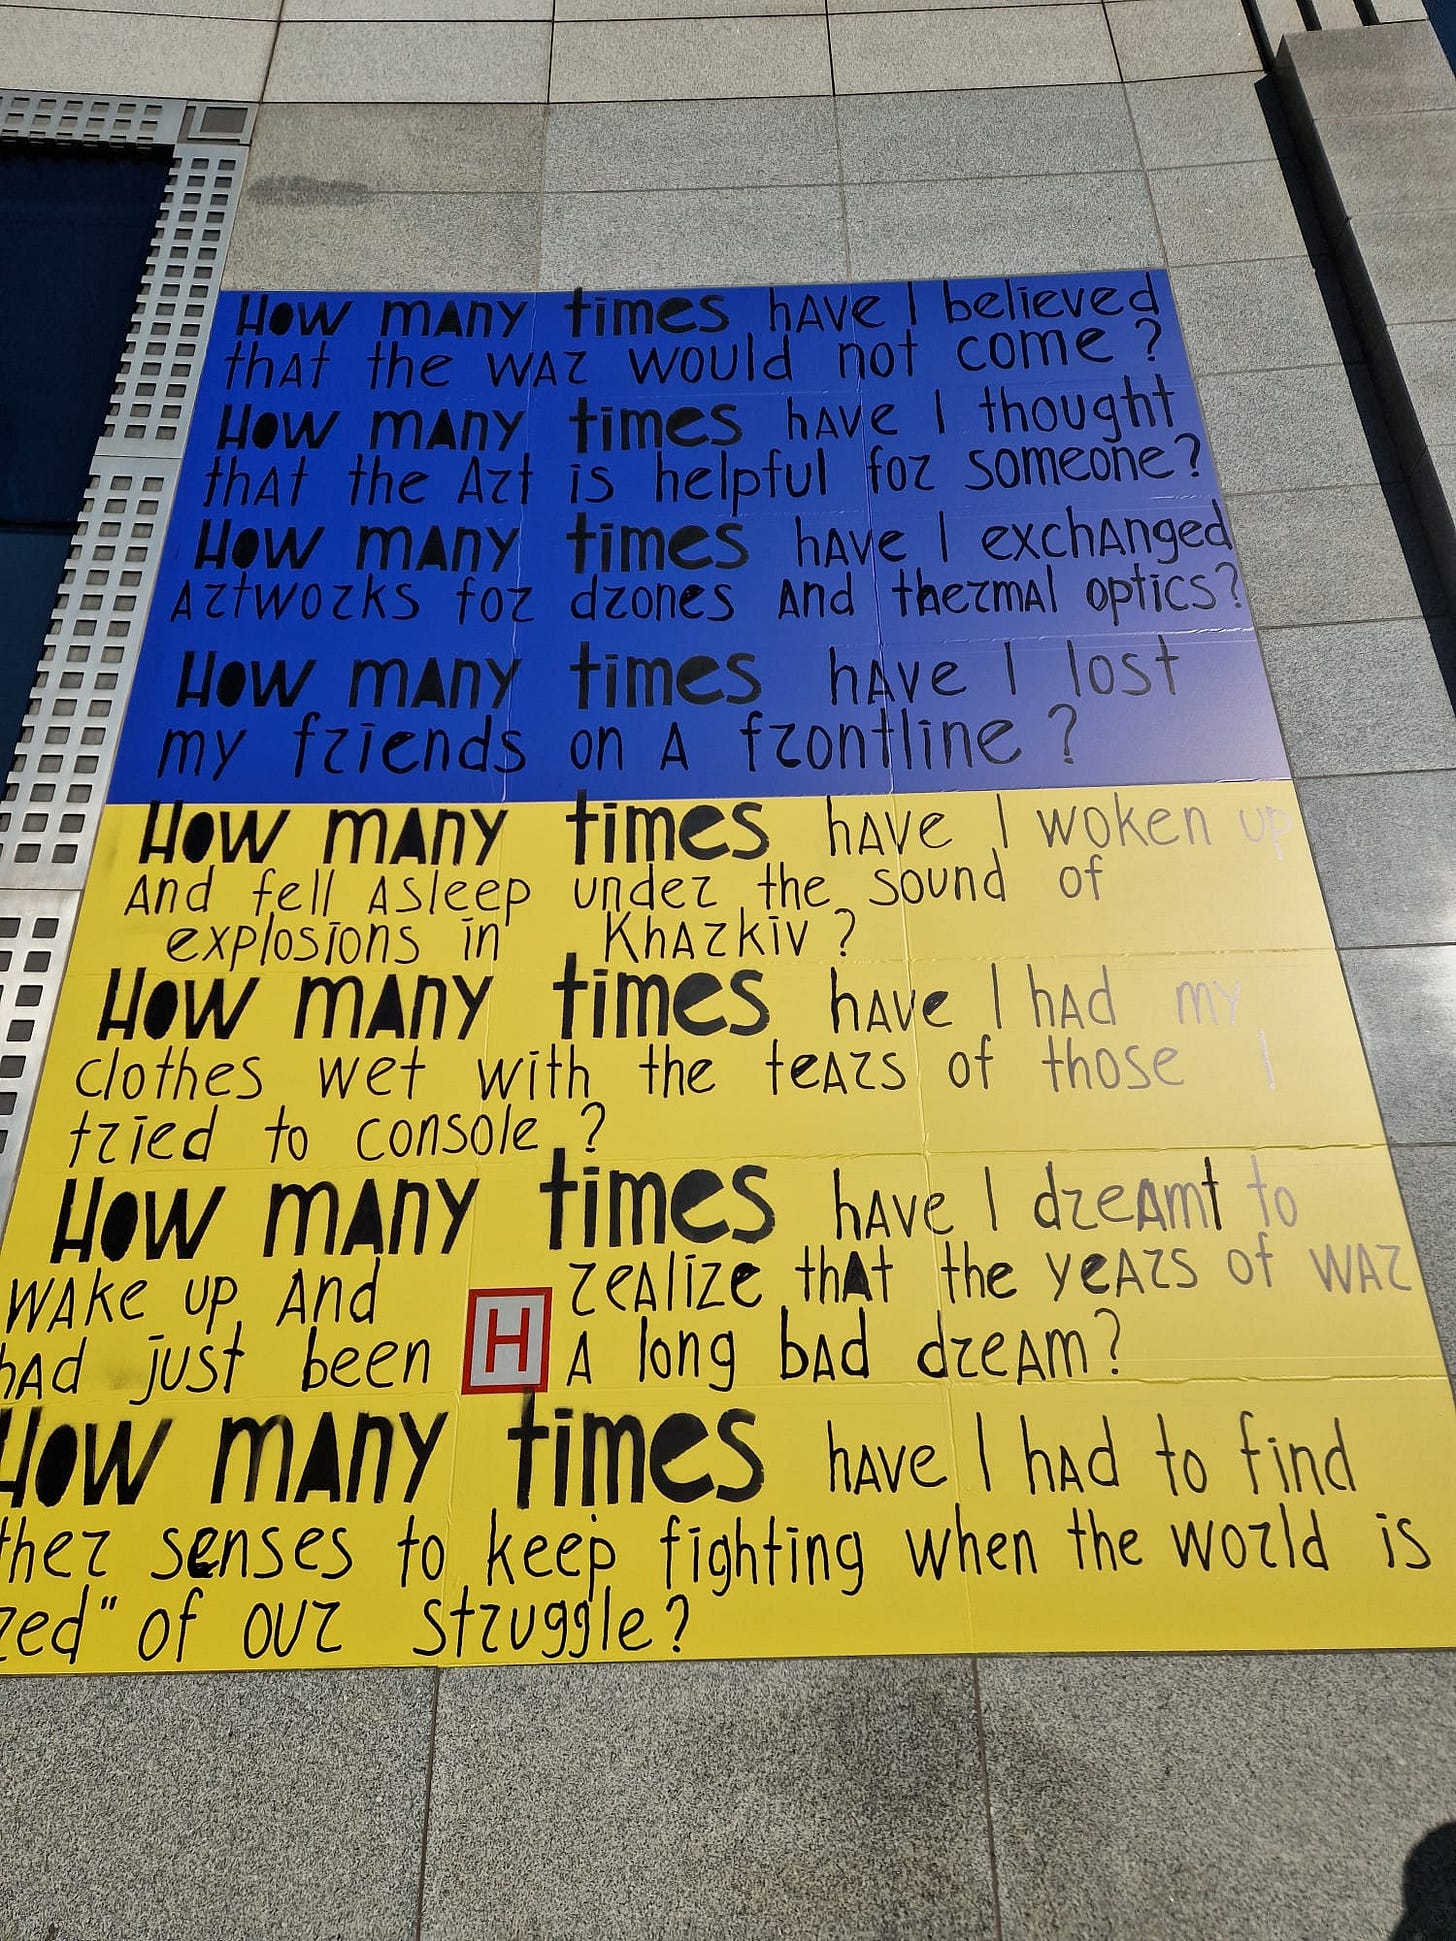 How many times have I believed
that the war would not come?
How many times have I thought
that the Art is helpful for someone?
How many times have I exchanged
Artworks for drones and thermal optics?
How many times have I lost
my friends on a frontline?
How many times have I woken up
And fell Asleep under the sound of
explosions in Kharkiv?
How many times have I had my
clothes wet with the tears of those I
tried to console?
How many times have I dreamt to
wake up And realize that the years of war
had just been H A long bad dream?
How many times have I had to find
senses to keep fighting when the world is
of our struggle?